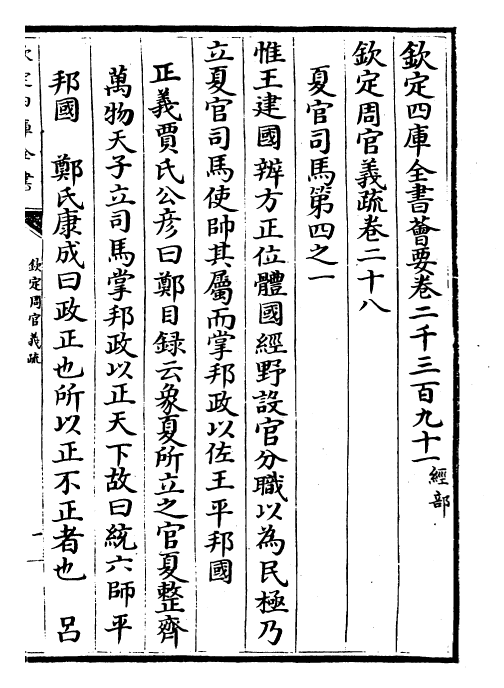 欽定四庫全書薈要卷二千三百九十一經部
欽定周官義疏卷二十八
夏官司馬第四之一
惟王建國辨方正位體國經野設官分職以為民極乃
立夏官司馬使帥其屬而掌邦政以佐王平邦國
正義賈氏公彦曰鄭目録云象夏所立之官夏整齊
萬物天子立司馬掌邦政以正天下故曰統六師平
邦國 鄭氏康成曰政正也所以正不正者也 呂
欽定四庫全書
欽定周官義疏
一